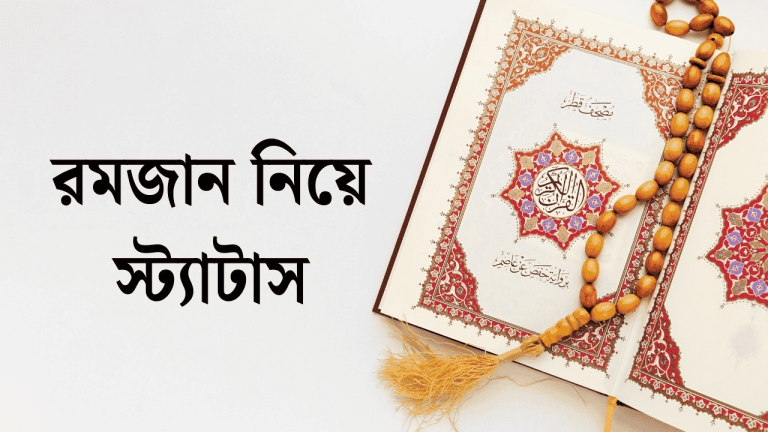 রমজান নিয়ে
স্ট্যাটাস
مصحف قطر
القرآن الكريم
برواية حفص عن عاصم